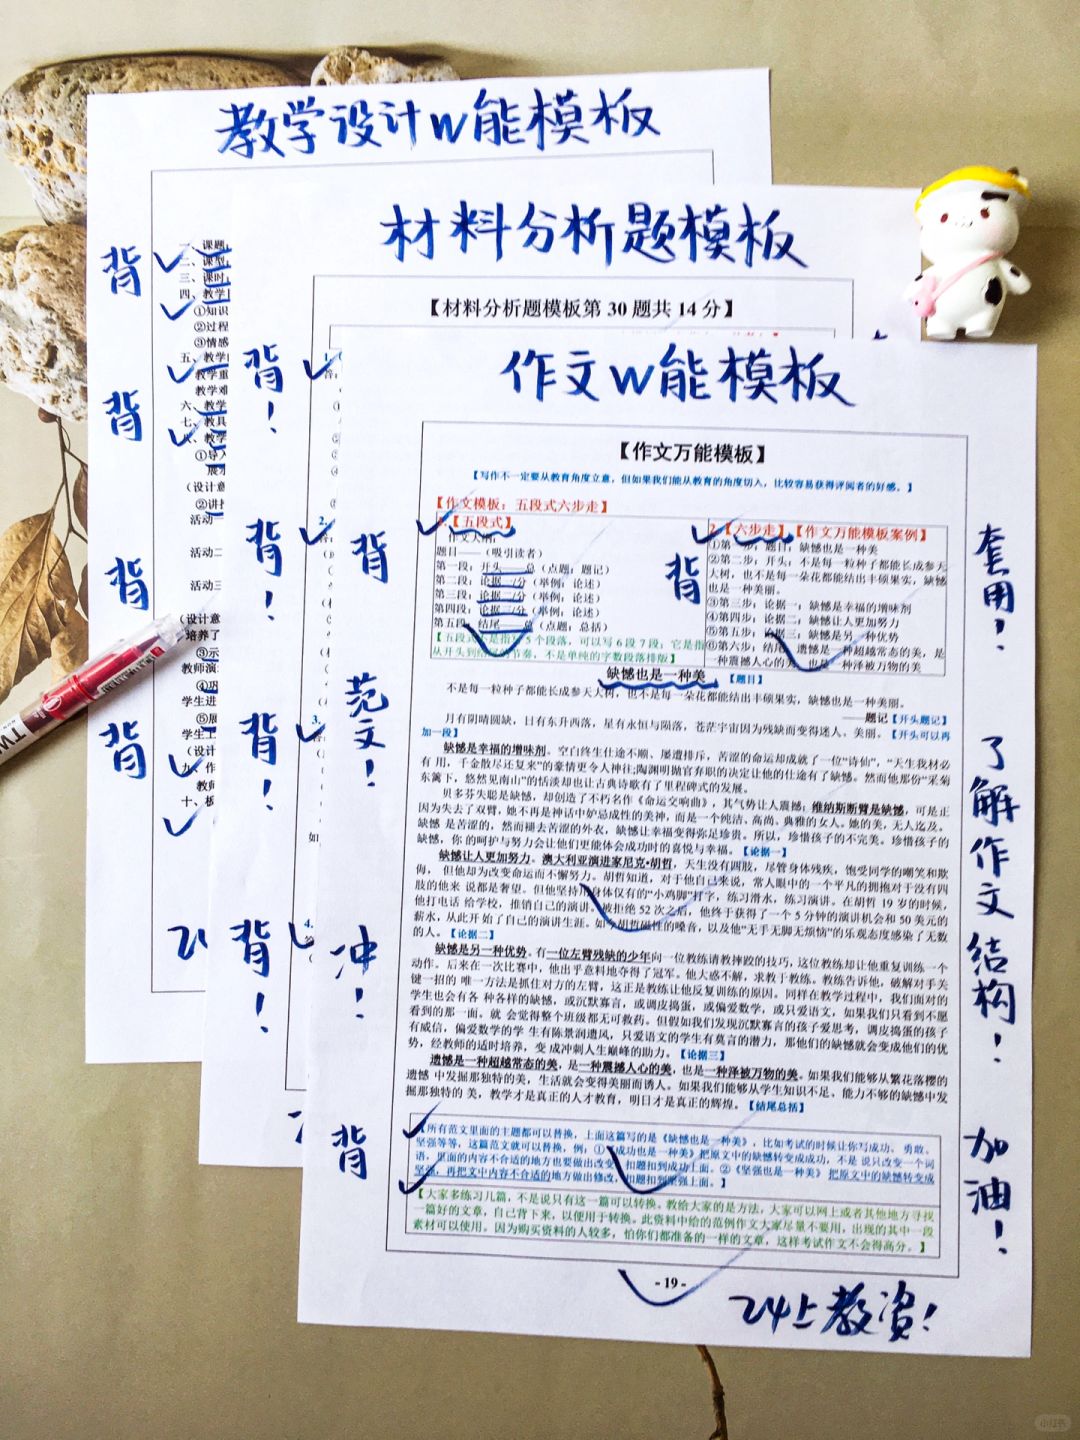 教学设计w能模板
背
背
背
背
一、课题
二、课型
三、课时
四、教学
①知识
②过程
③情感
五、教学
教学重
教学难
六、教学
七、教具
八、教学
①导入
展示
（设计意
②讲授
活动一
活动二
活动三
（设计意
培养了
③示
教师演
④巩
学生进
⑤展
学生上
（设计
九、作
教师
十、板
材料分析题模板
【材料分析题模板第 30 题共 14 分】
背！
背！
背！
背！
1.
2.
3.
4.
作文w能模板
【作文万能模板】
【写作不一定要从教育角度立意，但如果我们能从教育的角度切入，比较容易获得评阅者的好感。】
【作文模板：五段式六步走】
【五段式】
作文大纲：
题目——（吸引读者）
第一段：开头——总（点题：题记）
第二段：论据一/分（举例：论述）
第三段：论据二/分（举例：论述）
第四段：论据三/分（举例：论述）
第五段：结尾——总（点题：总括）
【五段式不是指只5个段落，可以写6段7段；它是指
从开头到结尾的节奏，不是单纯的字数段落排版】
2.【六步走】【作文万能模板案例】
①第一步：题目：缺憾也是一种美
②第二步：开头：不是每一粒种子都能长成参天
大树，也不是每一朵花都能结出丰硕果实，缺憾
也是一种美丽。
③第三步：论据一：缺憾是幸福的增味剂
④第四步：论据二：缺憾让人更加努力
⑤第五步：论据三：缺憾是另一种优势
⑥第六步：结尾：遗憾是一种超越常态的美，是
一种震撼人心的美，也是一种泽被万物的美
缺憾也是一种美 【题目】
不是每一粒种子都能长成参天大树，也不是每一朵花都能结出丰硕果实，缺憾也是一种美丽。
——题记【开头题记】
月有阴晴圆缺，日有东升西落，星有永恒与陨落，苍茫宇宙因为残缺而变得迷人、美丽。【开头可以再
加一段】
缺憾是幸福的增味剂。空白终生仕途不顺、屡遭排斥，苦涩的命运却成就了一位“诗仙”，“天生我材必
有 用，千金散尽还复来”的豪情更令人神往;陶渊明抛官弃职的决定让他的仕途有了缺憾。然而他那份“采菊
东篱下，悠然见南山”的恬淡却也让古典诗歌有了里程碑式的发展。
贝多芬失聪是缺憾，却创造了不朽名作《命运交响曲》，其气势让人震撼；维纳斯断臂是缺憾，可是正
因为失去了双臂，她不再是神话中妒忌成性的美神，而是一个纯洁、高尚、典雅的女人。她的美，无人迄及。
缺憾 是苦涩的，然而褪去苦涩的外衣，缺憾让幸福变得弥足珍贵。所以，珍惜孩子的不完美。珍惜孩子的
缺憾，你 的呵护与努力会让他们更能体会成功时的喜悦与幸福。【论据一】
缺憾让人更加努力。澳大利亚演进家尼克•胡哲，天生没有四肢，尽管身体残疾，饱受同学的嘲笑和欺
侮， 但他却为改变命运而不懈努力。胡哲知道，对于他自己来说，常人眼中的一个平凡的拥抱对于没有四
肢的他来 说都是奢望。但他坚持用身体仅有的“小鸡脚”打字，练习滑水，练习演讲。在胡哲 19 岁的时候，
他打电话 给学校，推销自己的演讲。被拒绝 52 次之后，他终于获得了一个 5 分钟的演讲机会和 50 美元的
薪水，从此开 始了自己的演讲生涯。如今胡哲磁性的嗓音，以及他“无手无脚无烦恼”的乐观态度感染了无数
的人。【论据二】
缺憾是另一种优势。有一位左臂残缺的少年向一位教练请教摔跤的技巧，这位教练却让他重复训练一个
动作。后来在一次比赛中，他出乎意料地夺得了冠军。他大惑不解，求教于教练。教练告诉他，破解对手关
键一招的 唯一方法是抓住对方的左臂，这正是教练让他反复训练的原因。同样在教学过程中，我们面对的
学生也会有各 种各样的缺憾，或沉默寡言，或调皮捣蛋，或偏爱数学，或只爱语文，如果我们只看到不愿
看到的那一面。就 会觉得整个班级都无可教药。但假如我们发现沉默寡言的孩子爱思考，调皮捣蛋的孩子
有威信，偏爱数学的学 生有陈景润遗风，只爱语文的学生有莫言的潜力，那他们的缺憾就会变成他们的优
势，经教师的适时培养，变 成冲刺人生巅峰的助力。【论据三】
遗憾是一种超越常态的美，是一种震撼人心的美，也是一种泽被万物的美。如果我们能够从繁花落樱的
遗憾 中发掘那独特的美，生活就会变得美丽而诱人。如果我们能够从学生知识不足、能力不够的缺憾中发
掘那独特的 美，教学才是真正的人才教育，明日才是真正的辉煌。【结尾总括】
【所有范文里面的主题都可以替换，上面这篇写的是《缺憾也是一种美》，比如考试的时候让你写成功、勇敢、
坚强等等，这篇范文就可以替换，例：①《成功也是一种美》把原文中的缺憾转变成成功，不是 说只改变一个词
语，里面的内容不合适的地方也要做出改变，扣题扣到成功上面。②《坚强也是一种美》 把原文中的缺憾转变成
坚强，再把文中内容不合适的地方做出修改，扣题扣到坚强上面。】
【大家多练习几篇，不是说只有这一篇可以转换。教给大家的是方法，大家可以网上或者其他地方寻找
一篇好的文章，自己背下来，以便用于转换。此资料中给的范例作文大家尽量不要用，出现的其中一段
素材可以使用。因为购买资料的人较多，怕你们都准备的一样的文章，这样考试作文不会得高分。】
- 19 -
背
背
范文！
冲！
背
套用！
了解作文结构！
加油！
24上教资！
小红书